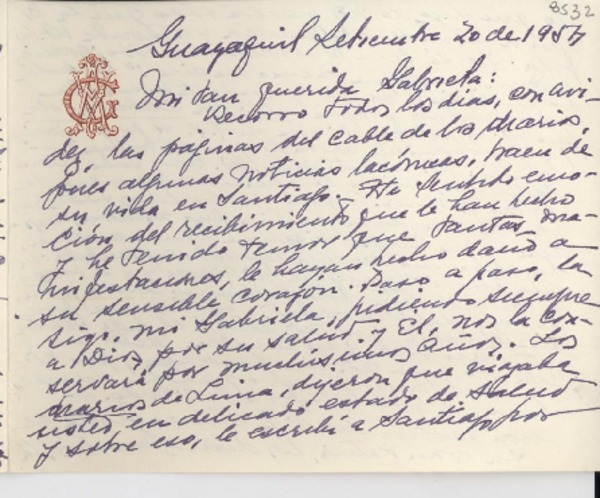 8532
Guayaquil Setiembre 20 de 1954
Mi tan querida Gabriela:
Recorro todos los días, con avi-
dez, las páginas del cable de los diarios,
pues algunas noticias lacónicas, traen de
su vida en Santiago. He sentido emo-
ción del recibimiento que le han hecho
y he tenido temor que tantas ma-
nifestaciones, le hayan hecho daño a
su sensible corazón. Paso a paso, la
sigo, mi Gabriela, pidiendo siempre
a Dios, por su salud y El, nos la con-
servará por muchísimos años. Los
diarios de Lima, dijeron que viajaba
usted en delicado estado de salud
y sobre eso, le escribí a Santiago por